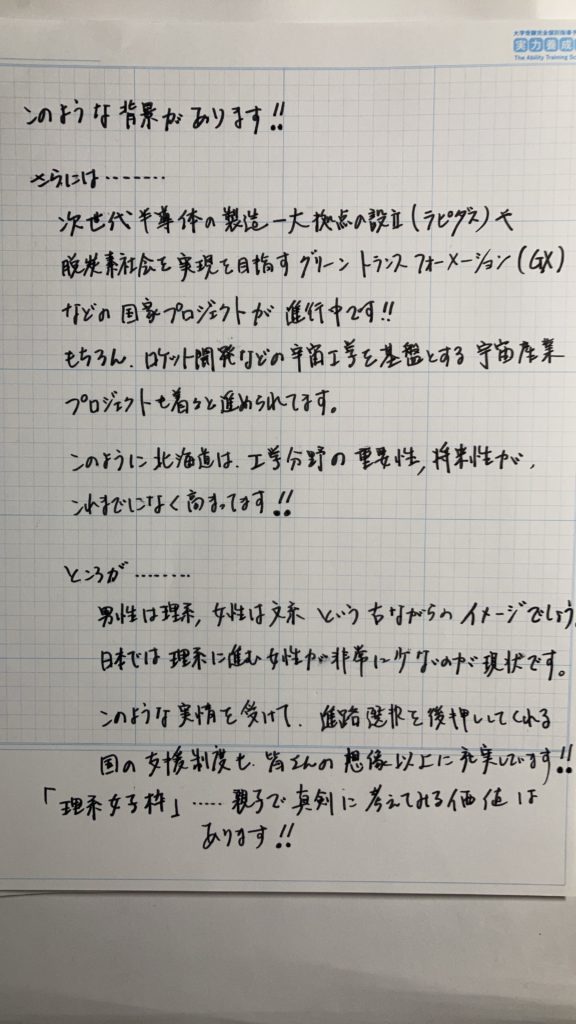 大学受験完全個別指導予
実力養成
The Ability Training Sc
このような背景があります!!
さらには‥‥‥‥
次世代半導体の製造一大拠点の設立(ラピダス)や
脱炭素社会を実現を目指すグリーントランスフォーメーション(GX)
などの国家プロジェクトが進行中です!!
もちろん、ロケット開発などの宇宙工学を基盤とする宇宙産業
プロジェクトも着々と進められてます。
このように北海道は、工学分野の重要性,将来性が、
これまでになく高まってます!!
ところが‥‥‥‥
男性は理系,女性は文系という古ながらのイメージでしょう、
日本では理系に進む女性が非常に少ないのが現状です。
このような実情を受けて、進路選択を後押ししてくれる
国の支援制度も、皆さんの想像以上に充実しています!!
「理系女子枠」‥‥‥親子で真剣に考えてみる価値は
あります!!